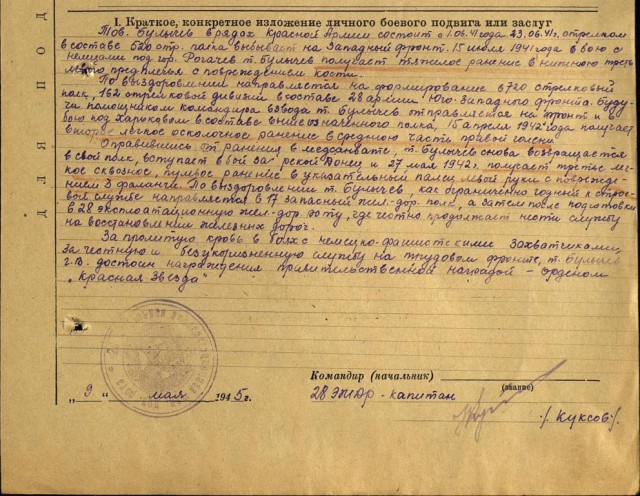 ДЛЯ ПОД
I. Краткое, конкретное изложение личного боевого подвига или заслуг
Тов. Булычев в рядах Красной Армии состоит с 1.06.41 года 23.06.41г. стрелком
в составе 520 стр. полка выбывает на Западный фронт. 15 июля 1941 года в бою с
немцами под гор. Рогачев т. Булычев получает тяжелое ранение в нижнюю треть
левого предплечья с повреждением кости.
По выздоровлении направляется на формирование в 720 стрелковый
полк, 162 стрелковой дивизии в составе 28 армии Юго-Западного фронта. Буду-
чи помощником командира взвода т. Булычев отправляется на фронт и в
бою под Харьковом в составе вышеозначенного полка, 15 апреля 1942 года получает
второе легкое осколочное ранение в среднюю часть правой голени.
Оправившись от ранения в медсанбате, т. Булычев снова возвращается
в свой полк, вступает в бой за рекой Донец и 27 мая 1942г. получает третье лег-
кое сквозное, пулевое ранение в указательный палец левой руки с поврежде-
нием фаланги. По выздоровлении т. Булычев, как ограниченно годный к строе-
вой службе направляется в 17 запасный жел-дор. полк, а затем после подготовки
в 28 эксплоатационную жел-дор. роту, где честно продолжает нести службу
на восстановлении железных дорог.
За пролитую кровь в боях с немецко-фашистскими захватчиками,
за честную и безукоризненную службу на трудовом фронте, т. Булычев
Г.В. достоин награждения правительственной наградой – орденом
„Красная Звезда"
Командир (начальник)
(звание)
„9" мая 1945г.
28 ЭЖДР - капитан
/. Куксов./